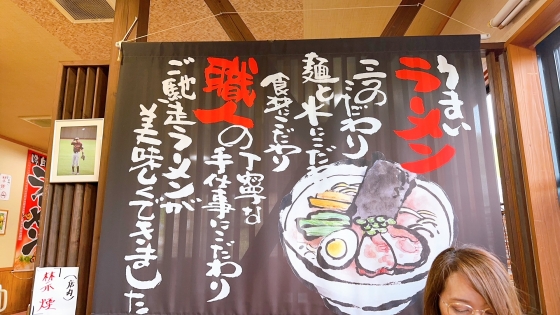 うまい
ラーメン
三つのこだわり
麺と水にこだわ
食材にこだわり
職人の丁寧な
手仕事にこだわり
ご馳走ラーメンが
美味しくできました
ラーメン
(店内)
禁煙